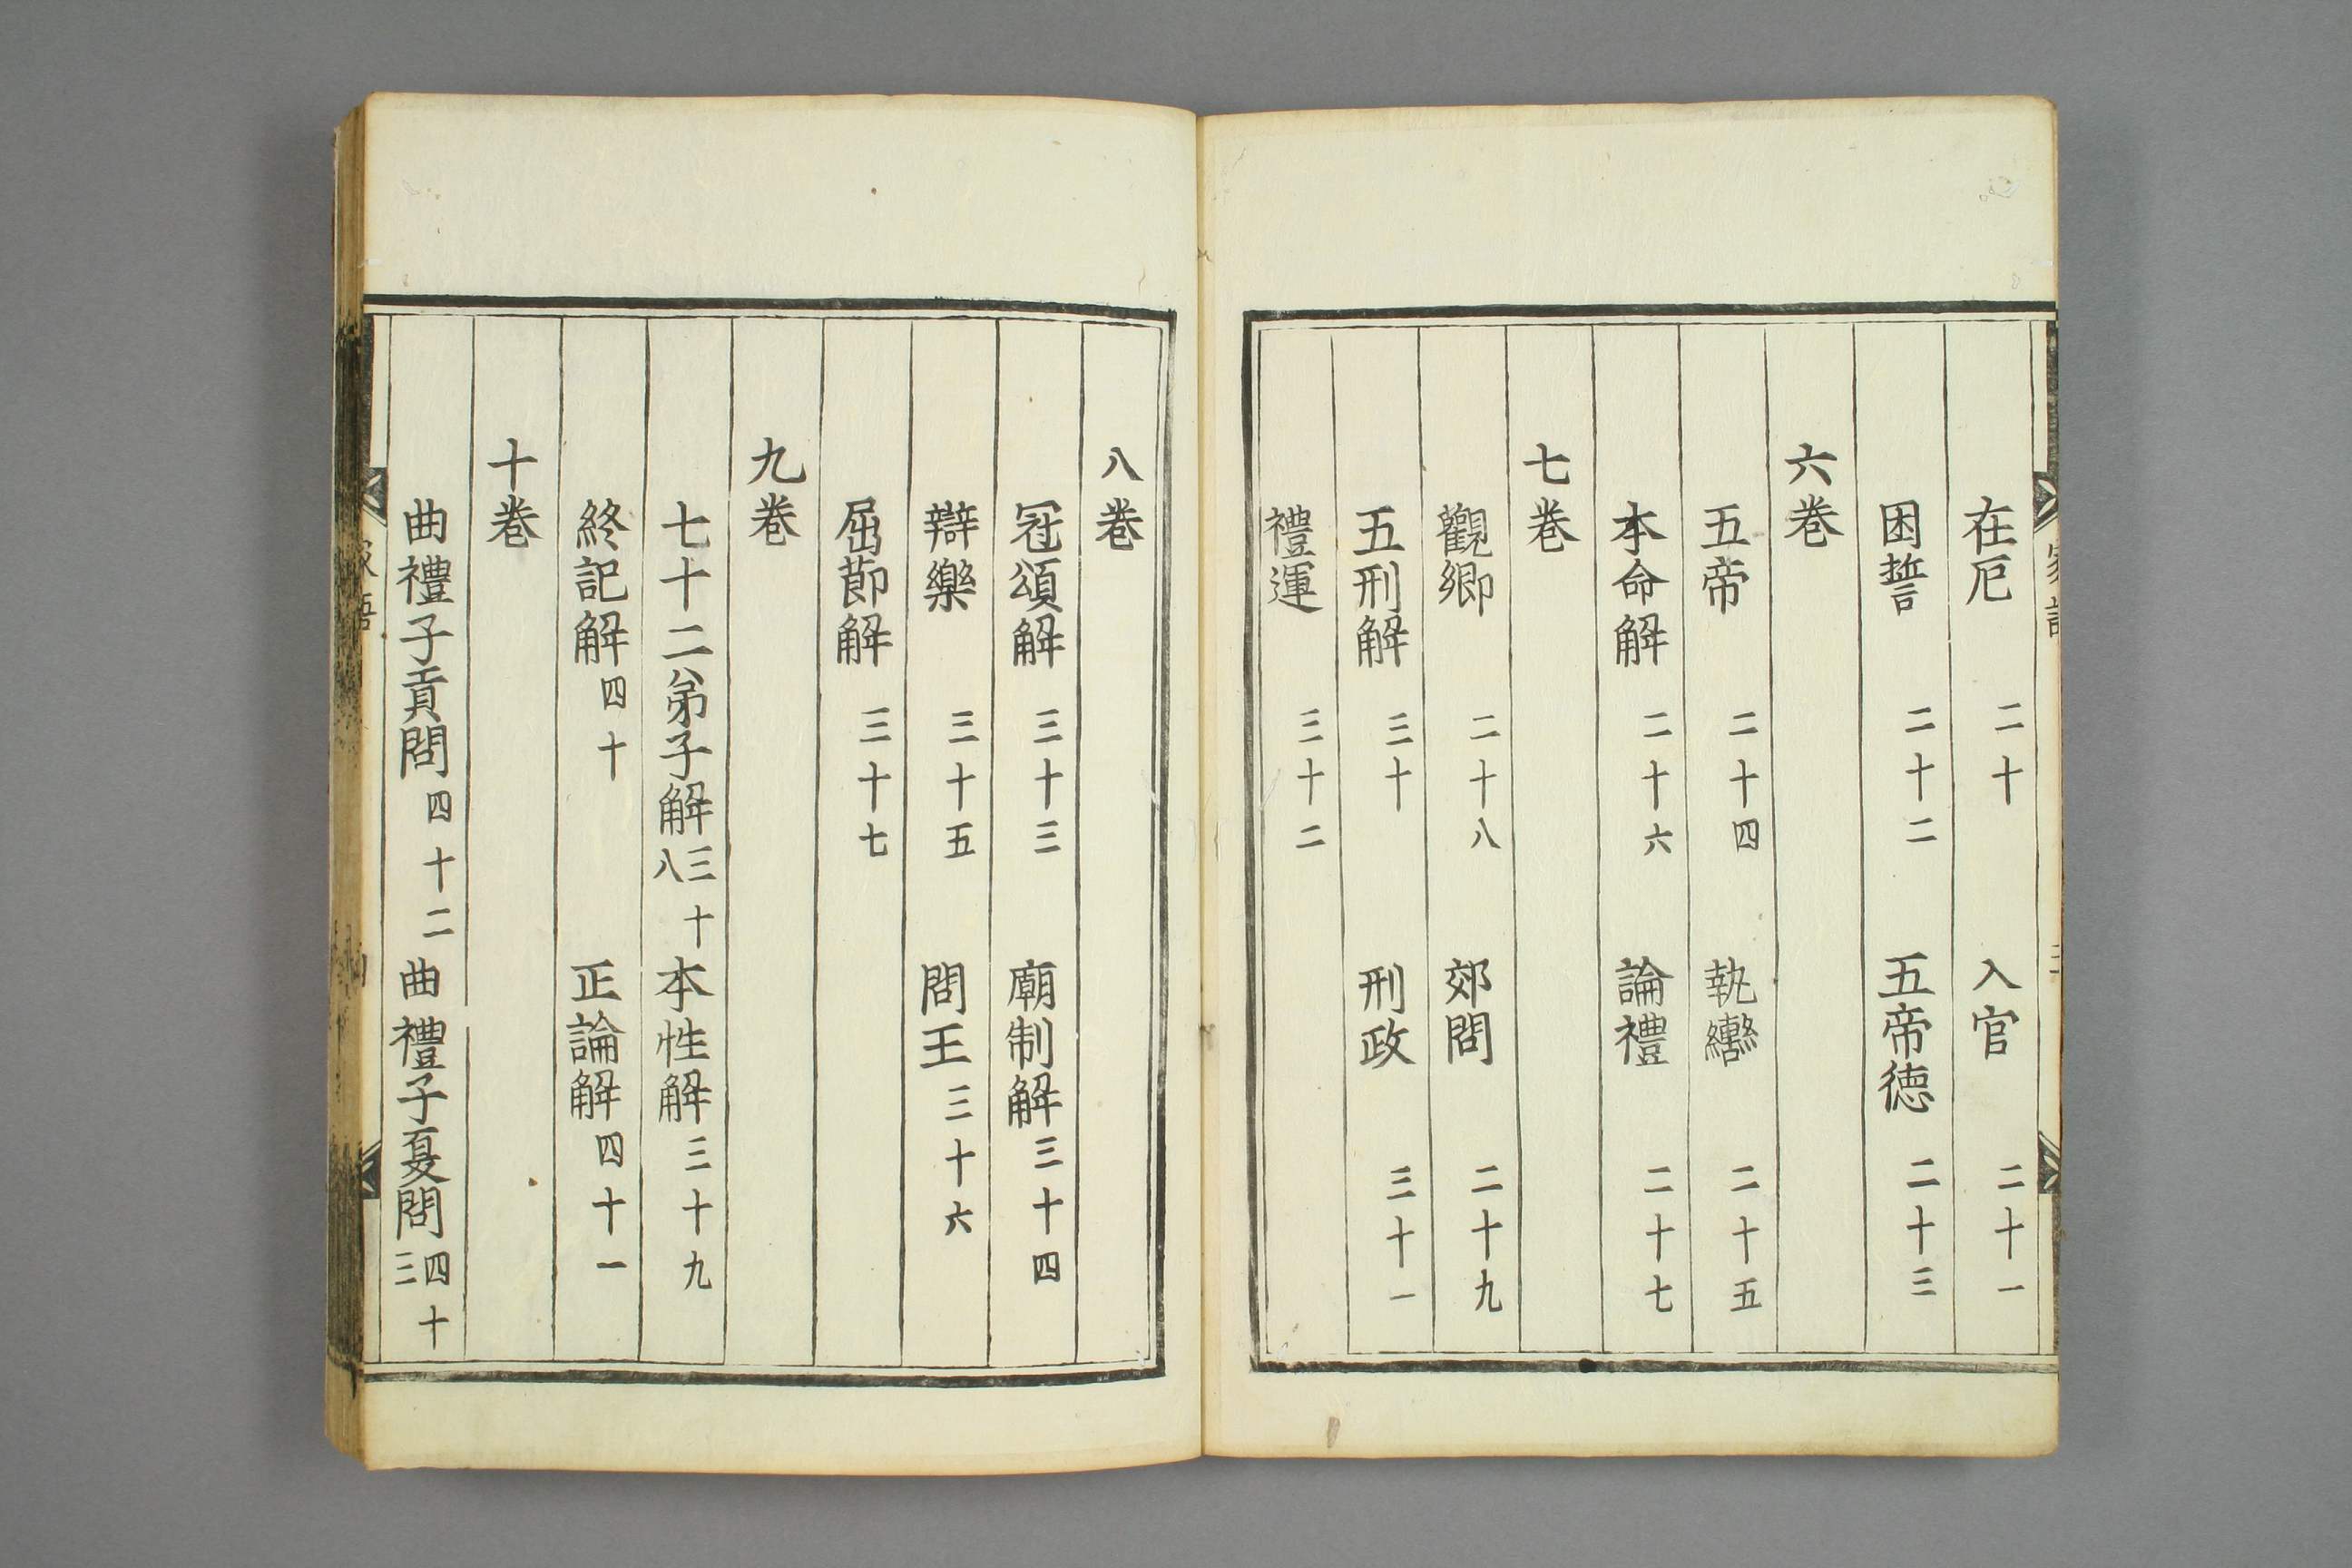 在厄 二十 入官 二十一
困誓 二十二 五帝徳 二十三
六巻
五帝 二十四 執轡 二十五
本命解 二十六 論禮 二十七
七巻
觀鄉 二十八 郊問 二十九
五刑解 三十 刑政 三十一
禮運 三十二
八巻
冠頌解 三十三 廟制解 三十四
辯樂 三十五 問王 三十六
屈節解 三十七
九巻
七十二弟子解 三十八 本性解 三十九
終記解 四十 正論解 四十一
十巻
曲禮子貢問 四十二 曲禮子夏問 四十三